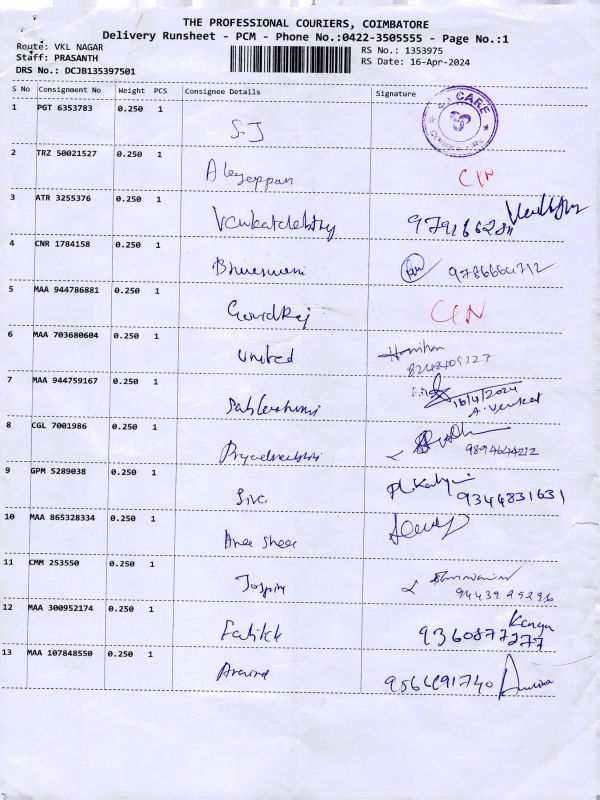 THE PROFESSIONAL COURIERS, COIMBATORE
Delivery Runsheet - PCM - Phone No.:0422-3505555 - Page No.:1
Route: VKL NAGAR
Staff: PRASANTH
DRS No.: DCJB135397501
RS No.: 1353975
RS Date: 16-Apr-2024
S No Consignment No Weight PCS Consignee Details Signature
1 PGT 6353783 0.250 1 SJ CARE
2 TRZ 50021527 0.250 1 Aleyeppan CIN
3 ATR 3255376 0.250 1
4 CNR 1784158 0.250 1 9786664712
5 MAA 944786881 0.250 1 GovidRaj CIN
6 MAA 703680604 0.250 1 United
7 MAA 944759167 0.250 1 16/4/2024
A. Venkat
8 CGL 7001986 0.250 1 9894644212
9 GPM 5289038 0.250 1 Siva 9344831631
10 MAA 865328334 0.250 1
11 CMM 253550 0.250 1 9443929296
12 MAA 300952174 0.250 1 Kanya
9360877277
13 MAA 107848550 0.250 1 Aravind 9566691740